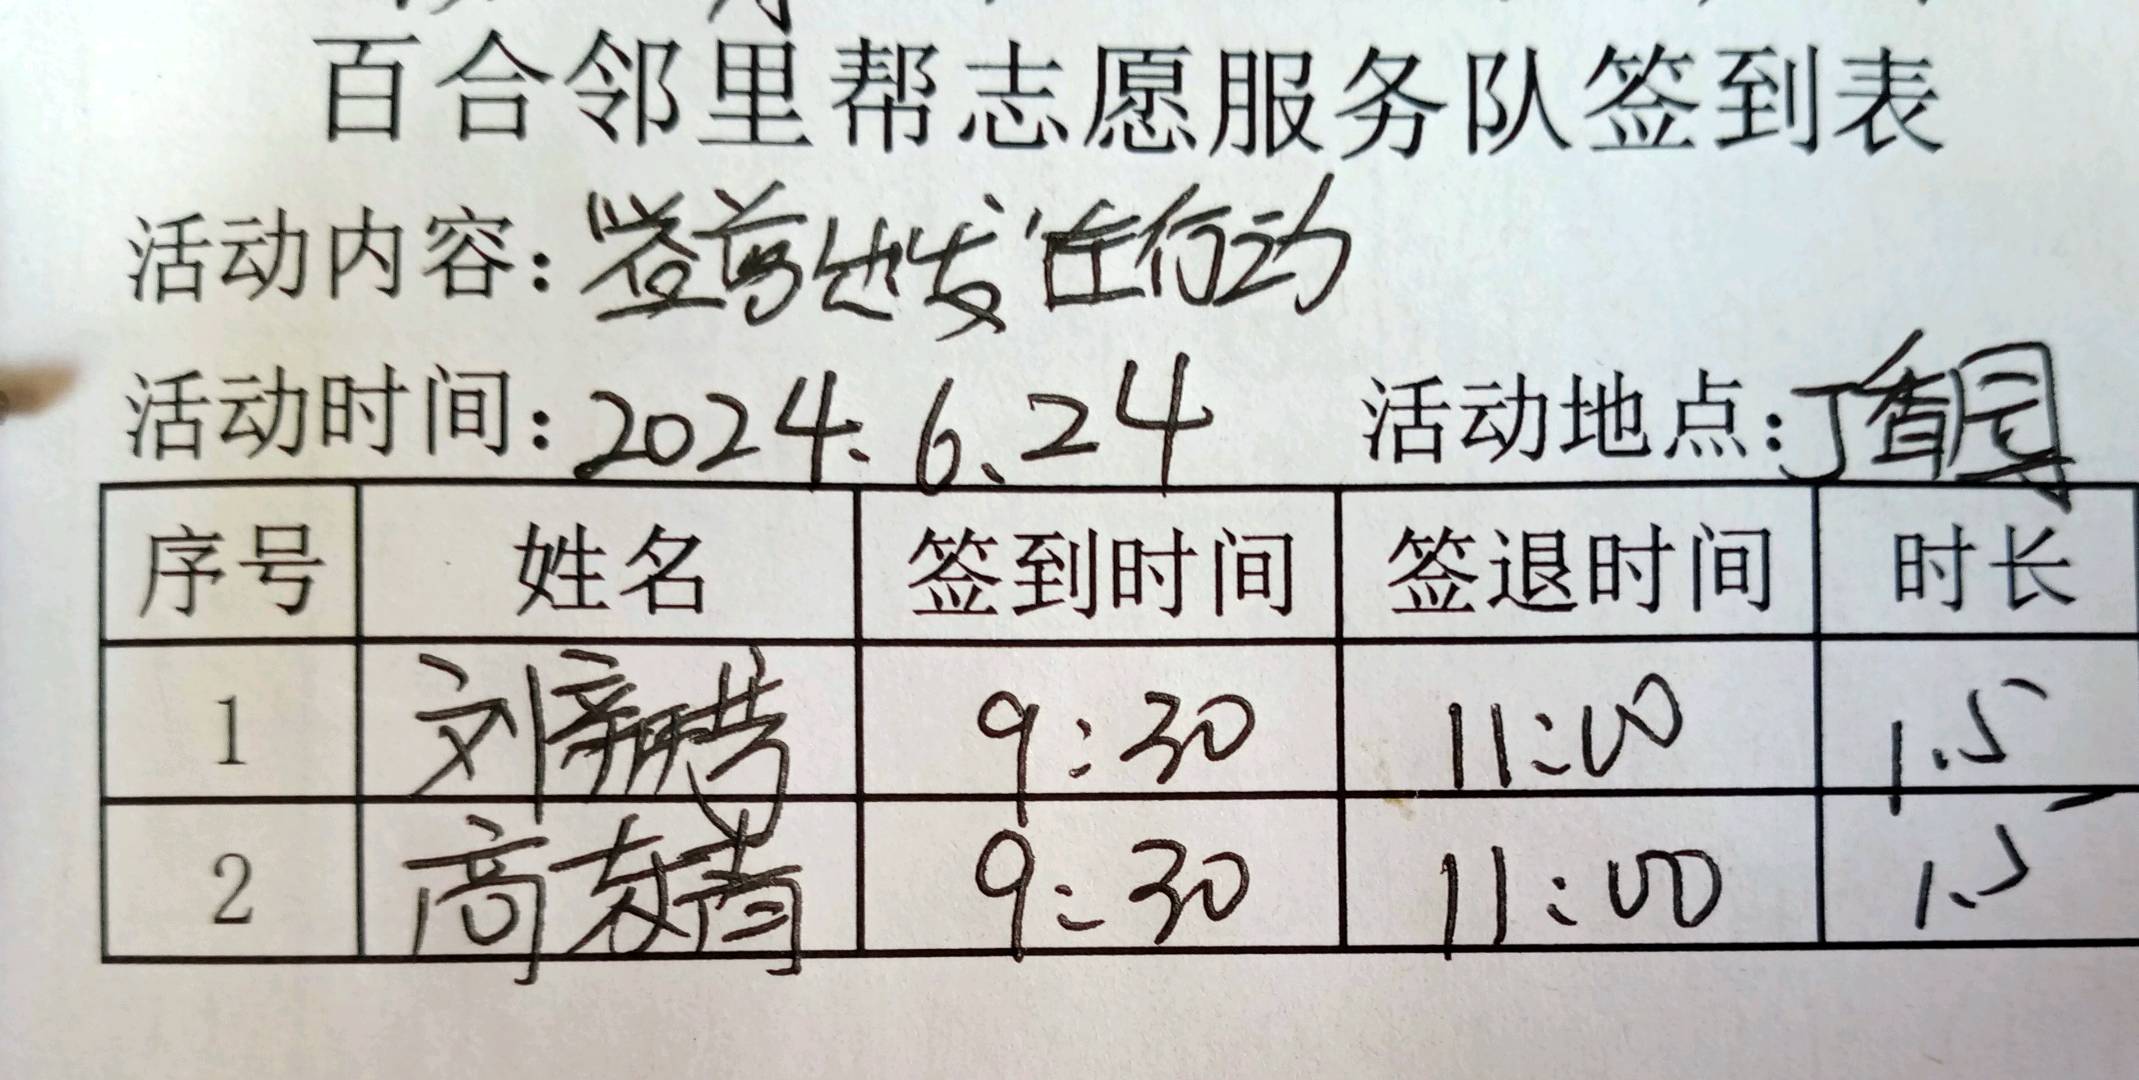 百合邻里帮志愿服务队签到表
活动内容: 在行动
活动时间: 2024.6.24 活动地点: 丁香园
序号 姓名 签到时间 签退时间 时长
1 刘 9:30 11:00 1.5
2 高 9:30 11:00 1.5